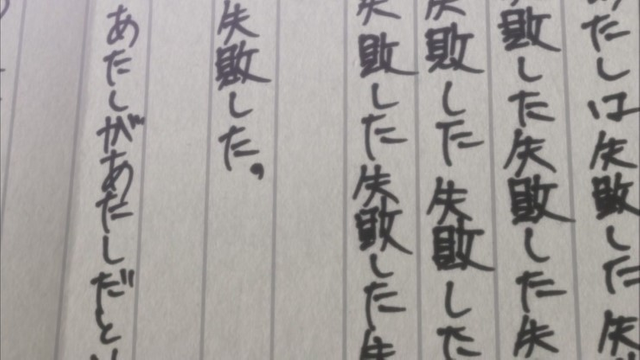 たしは失敗した失
敗した失敗した失
失敗した失敗した
失敗した失敗した失
失敗した。
あたしがあたしだと